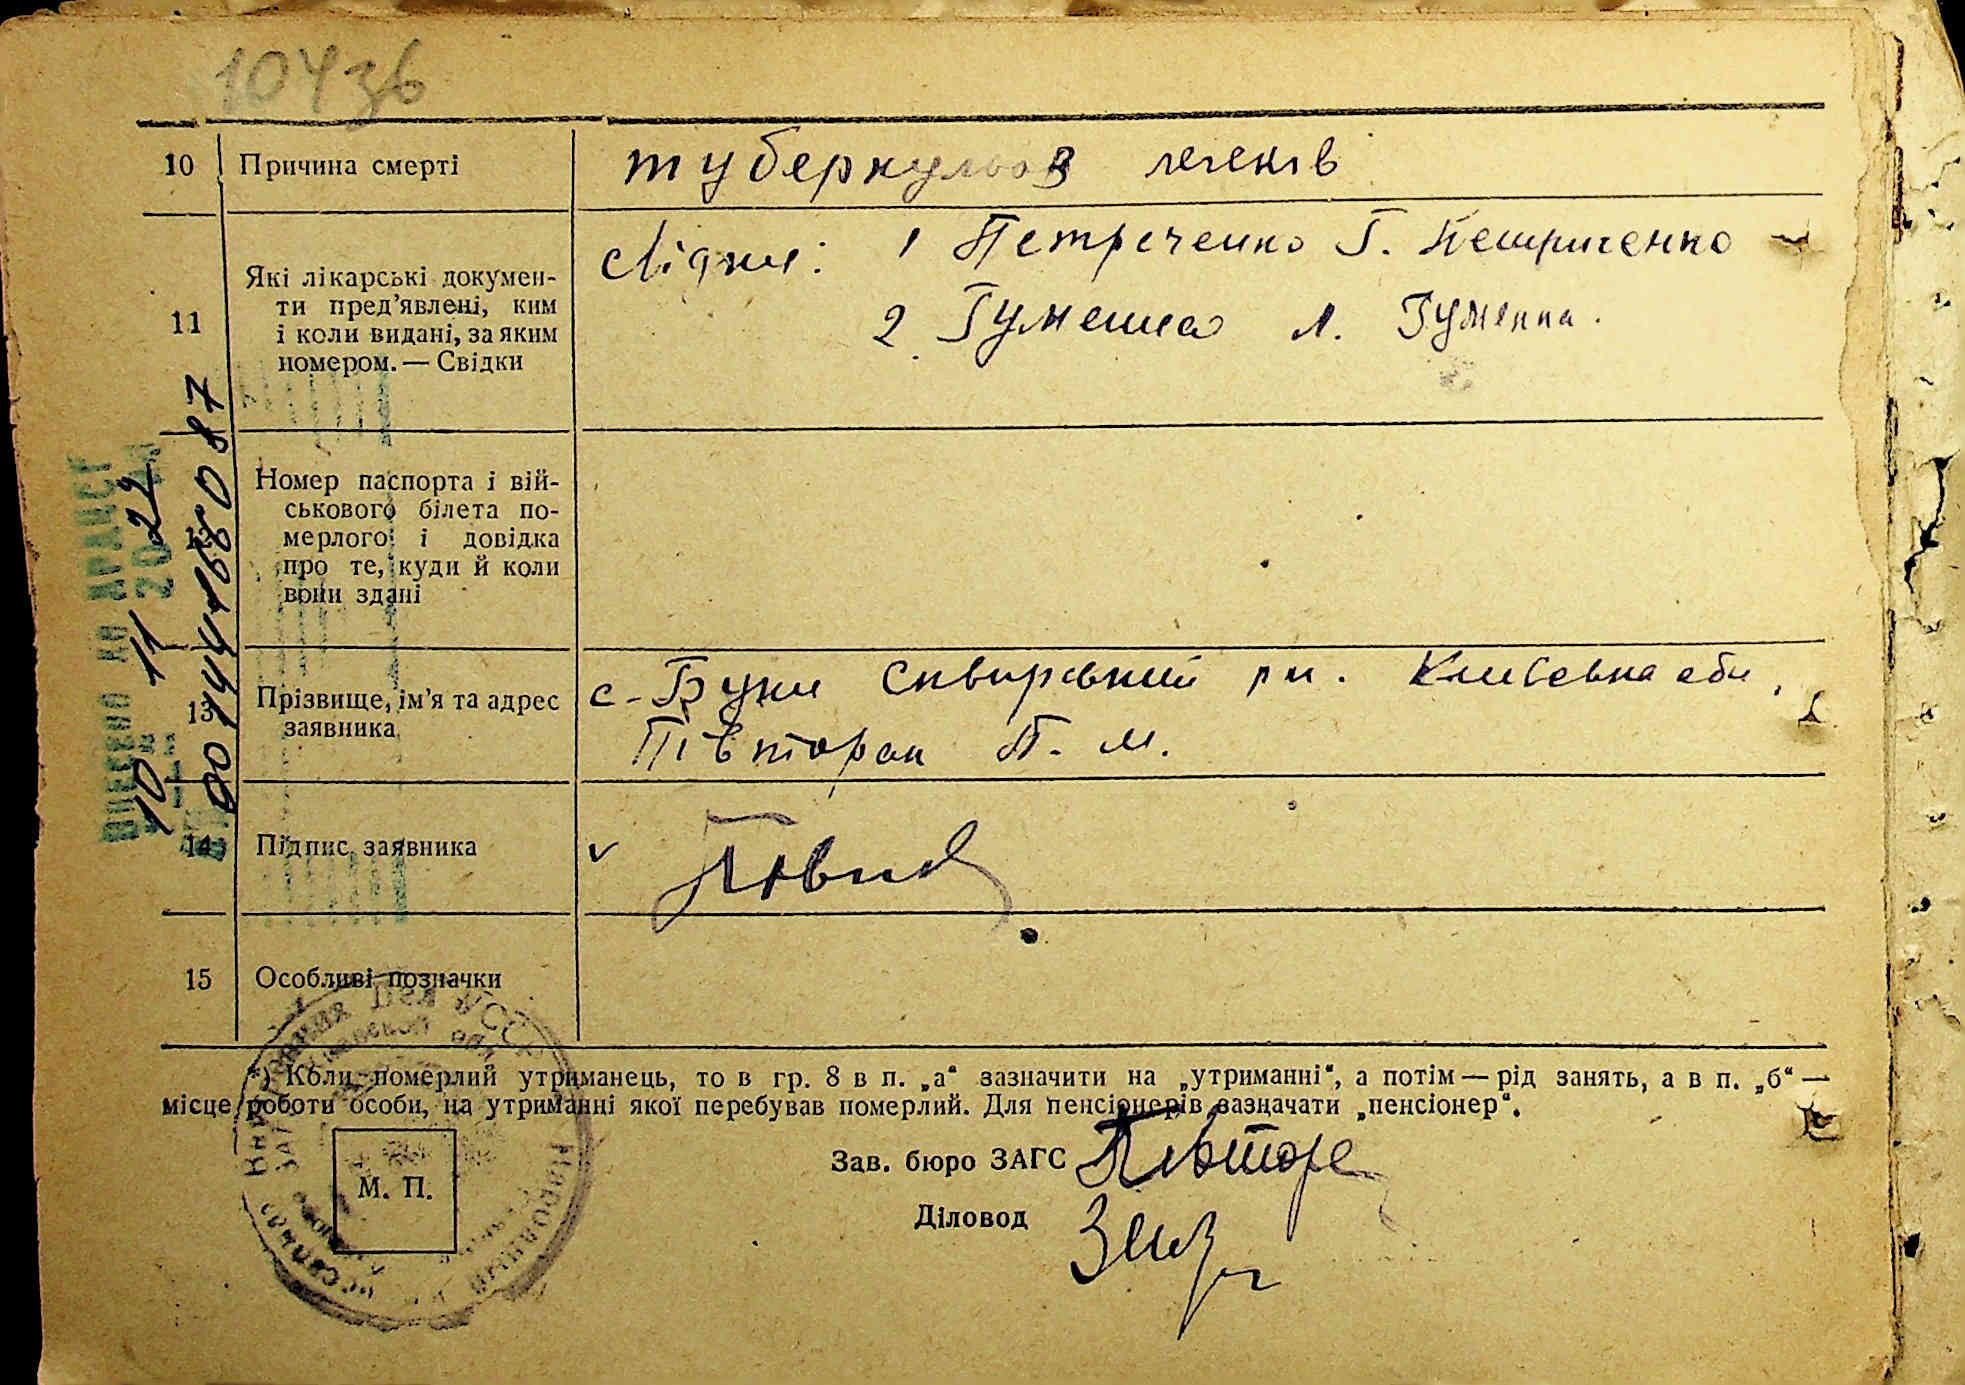 10436
10 Причина смерті туберкульоз легенів
11 Які лікарські документи
Які лікарські докумен-
ти пред’явлені, ким
і коли видані, за яким
номером. — Свідки
Свідки: 1 Петреченко Г. Петриченко
2 Гуменна Л. Гуменна.
Номер паспорта і вій-
ськового білета по-
мерлого і довідка
про те, куди й коли
вони здані
13 Прізвище, ім’я та адрес
заявника
с. Буки Сквирський рн. Київська обл,
Півторак П. М.
14 Підпис заявника
15 Особливі позначки
*) Коли померлий утриманець, то в гр. 8 в п. „а“ зазначити на „утриманні“, а потім — рід занять, а в п. „б“ —
місце роботи особи, на утриманні якої перебував померлий. Для пенсіонерів зазначати „пенсіонер“.
М. П.
Зав. бюро ЗАГС
Діловод
ВНЕСЕНО ДО ДРАЦСГ
10 11 2022